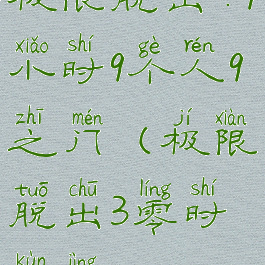 极限脱出:9
xiǎo shí gè rén
小时9个人9
zhī mén jí xiàn
之门(极限
tuō chū líng shí
脱出3零时
kùn jìng